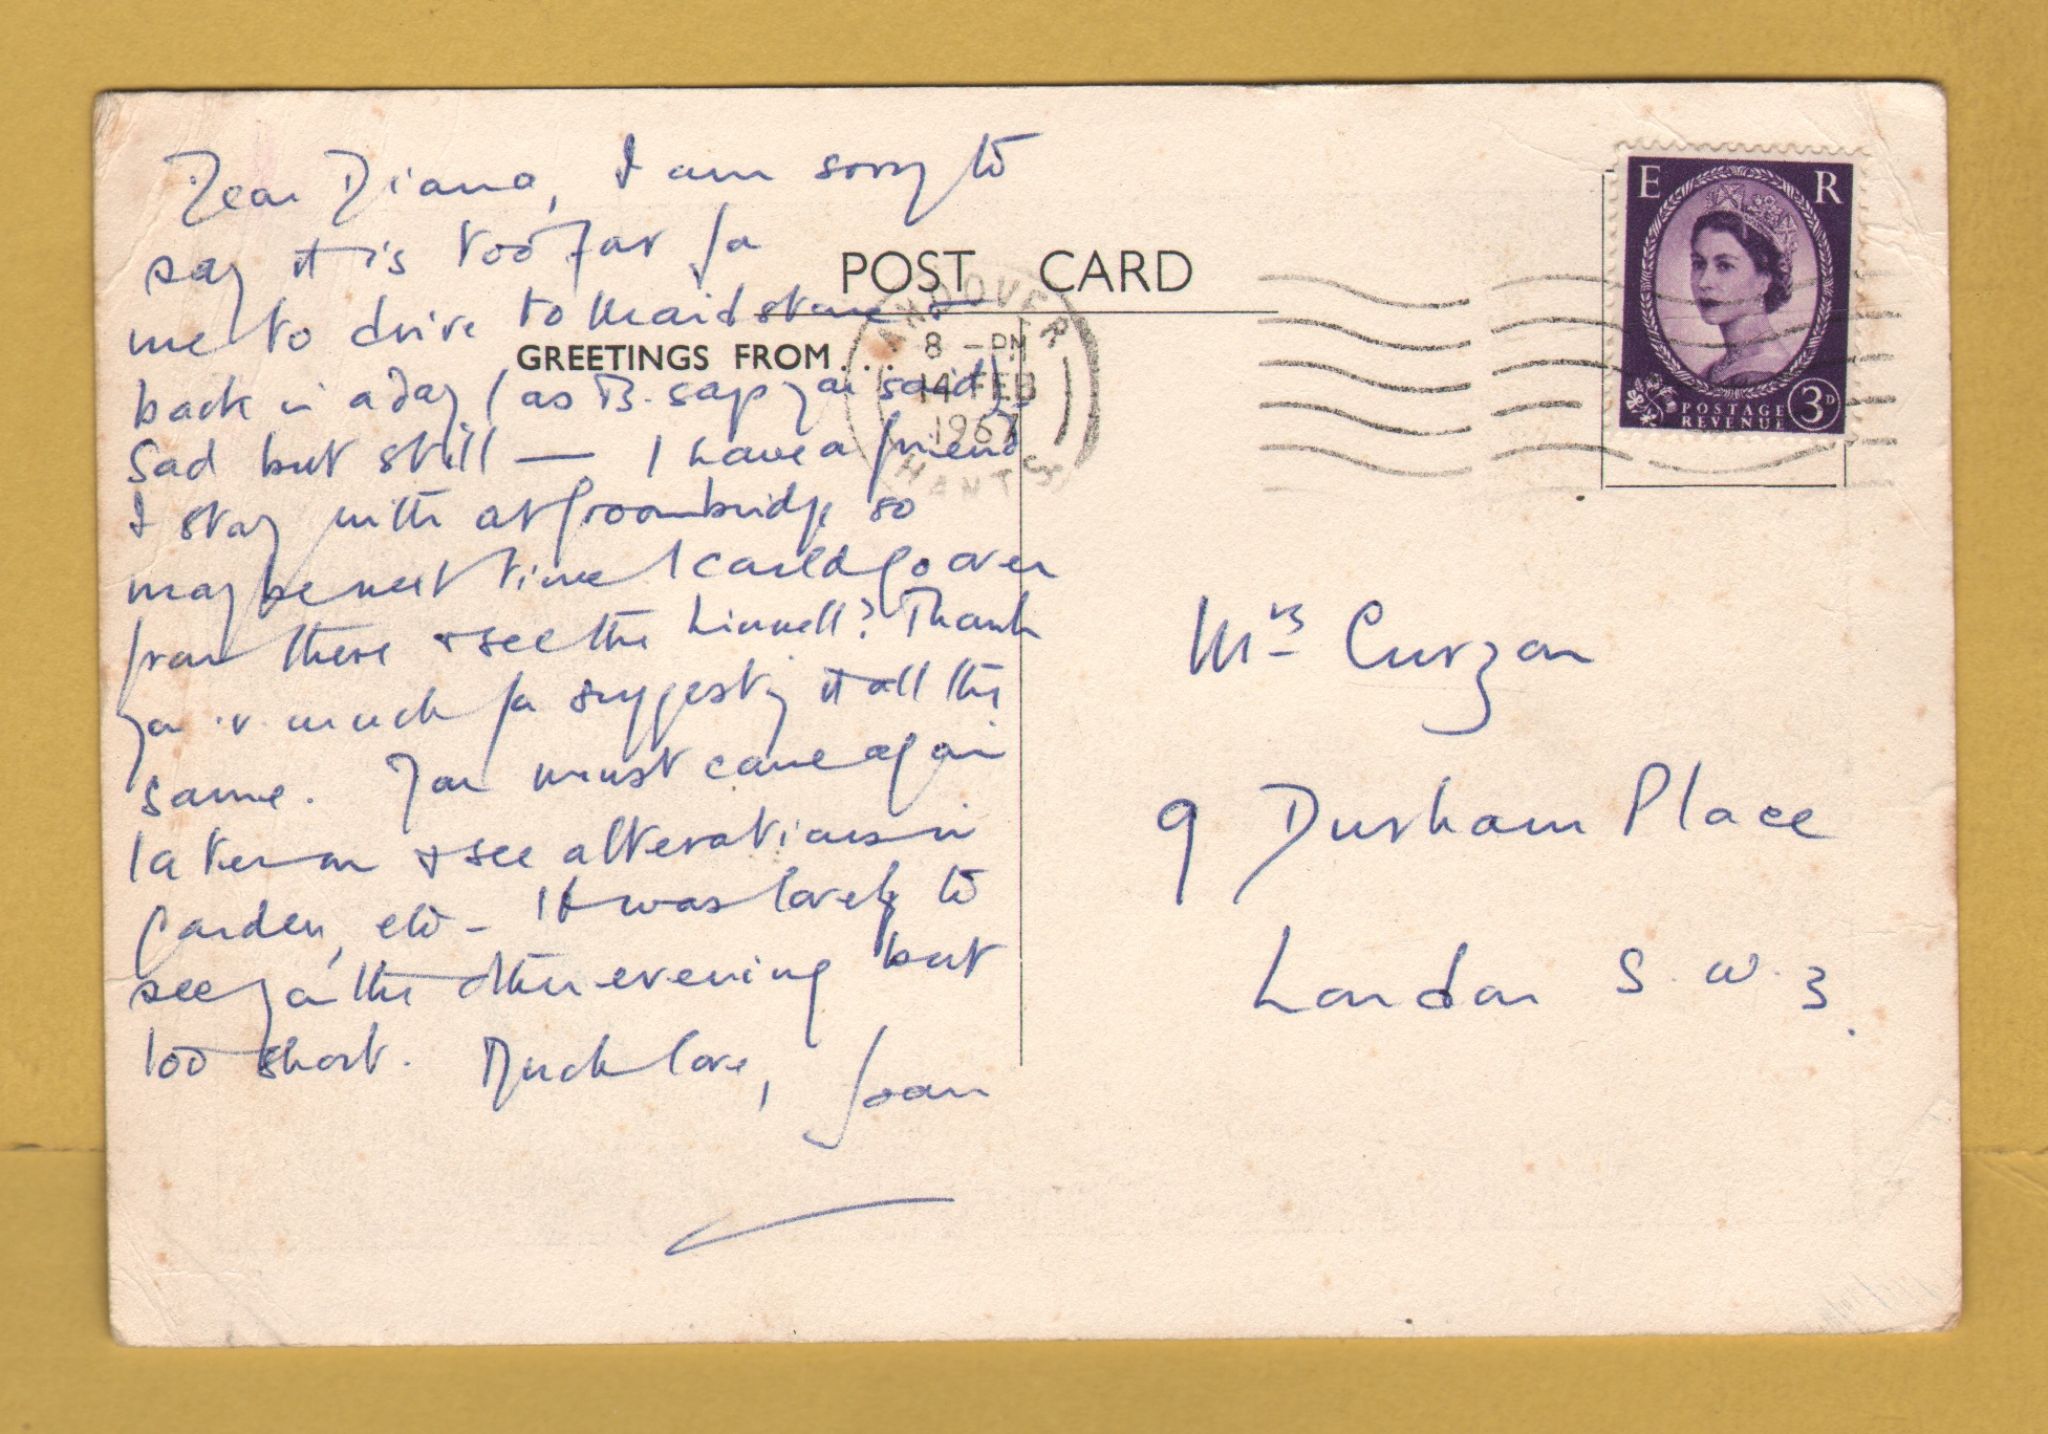 Dear Diana, I am sorry to
say it is too far for
me to drive to Maidstone &
back in a day (as B. says you said).
Sad but still — I have a friend
I stay with at Groombridge so
maybe next time I could go over
from there & see the Linnell? Thank
you v. much for suggesting it all the
same. You must come again
later on & see alterations in
garden, etc - It was lovely to
see you the other evening but
too short. Much love, Joan
POST CARD
GREETINGS FROM . . . .
ANDOVER
8 - PM
14 FEB
1967
HANTS
E R
POSTAGE
REVENUE
3D
Mrs Curzon
9 Durham Place
London S.W.3.